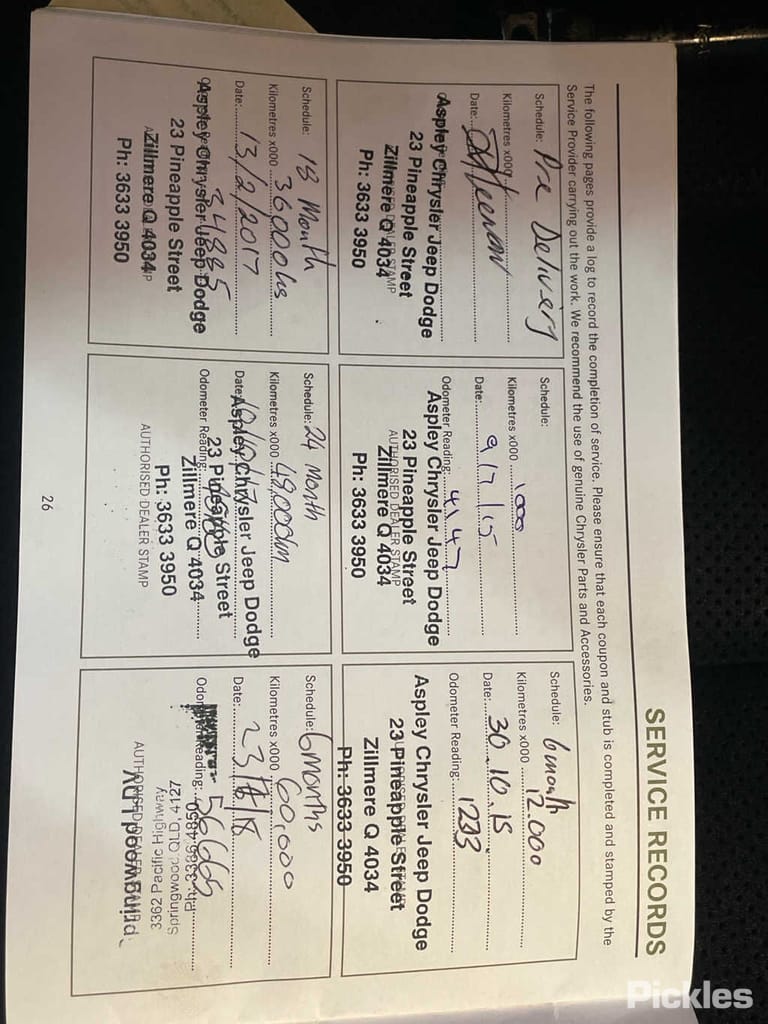 SERVICE RECORDS
The following pages provide a log to record the completion of service. Please ensure that each coupon and stub is completed and stamped by the
Service Provider carrying out the work. We recommend the use of genuine Chrysler Parts and Accessories.
Schedule: Pre Delivery
Kilometres x000
Date:
Aspley Chrysler Jeep Dodge
23 Pineapple Street
Zillmere Q 4034
Ph: 3633 3950
Schedule:
Kilometres x000 1000
Date: 9/7/15
Odometer Reading: 4147
Aspley Chrysler Jeep Dodge
23 Pineapple Street
AUTHORISED DEALER STAMP
Zillmere Q 4034
Ph: 3633 3950
Schedule: 6 month
Kilometres x000 12.000
Date: 30.10.15
Odometer Reading: 1233
Aspley Chrysler Jeep Dodge
23 Pineapple Street
Zillmere Q 4034
Ph: 3633 3950
Schedule: 18 Month
Kilometres x000 36000
Date: 13/2/2017
34885
Aspley Chrysler Jeep Dodge
23 Pineapple Street
Zillmere Q 4034
Ph: 3633 3950
Schedule: 24 Month
Kilometres x000 48,000km
Date:
Aspley Chrysler Jeep Dodge
Odometer Reading:
23 Pineapple Street
Zillmere Q 4034
Ph: 3633 3950
AUTHORISED DEALER STAMP
Schedule: 6 months
Kilometres x000 60,000
Date:
Odometer Reading:
Springwood, QLD, 4127
3362 Pacific Highway
AUTHORISED
26
Pickles